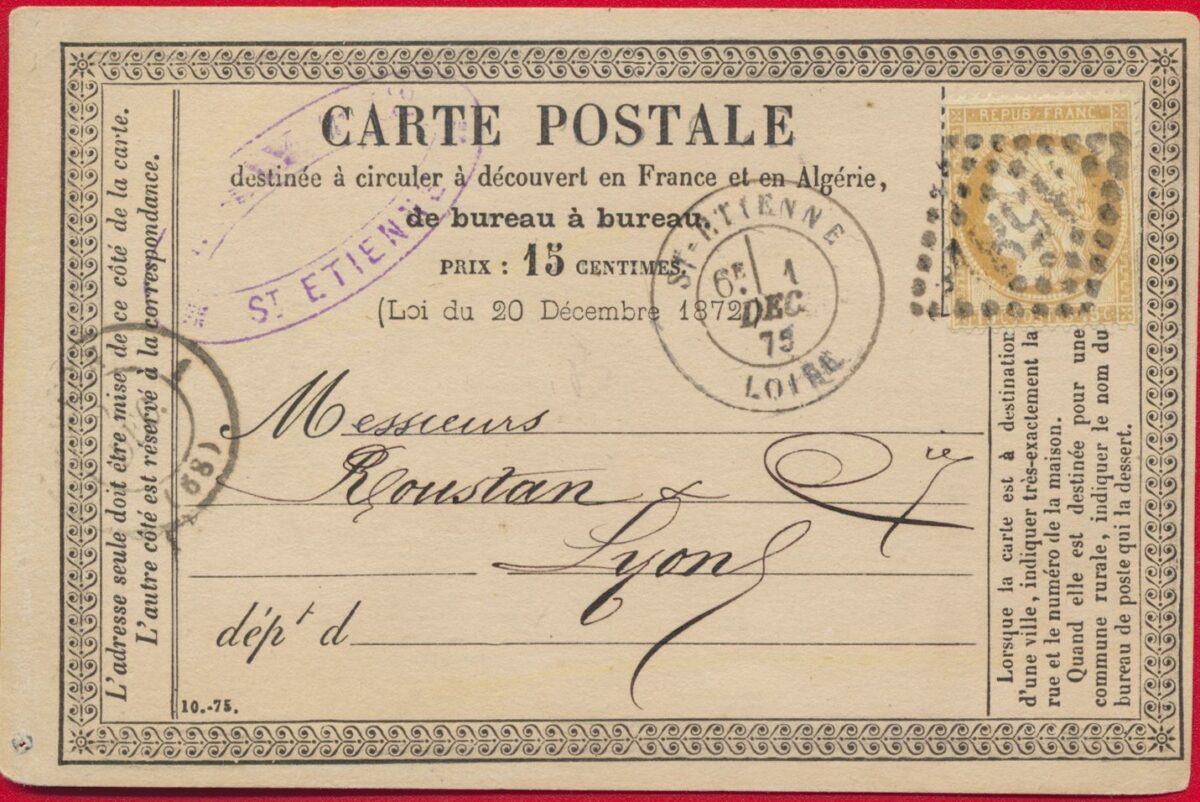 CARTE POSTALE
destinée à circuler à découvert en France et en Algérie,
de bureau à bureau.
PRIX : 15 CENTIMES.
(Loi du 20 Décembre 1872)
ST ETIENNE
ST-ETIENNE
6E 1
DEC
75
LOIRE
REPUB FRANC
L'adresse seule doit être mise de ce côté de la carte.
L'autre côté est réservé à la correspondance.
(68)
Messieurs
Roustan & Cie
Lyon
dépt d
10.-75.
Lorsque la carte est à destination
d'une ville, indiquer très-exactement la
rue et le numéro de la maison.
Quand elle est destinée pour une
commune rurale, indiquer le nom du
bureau de poste qui la dessert.